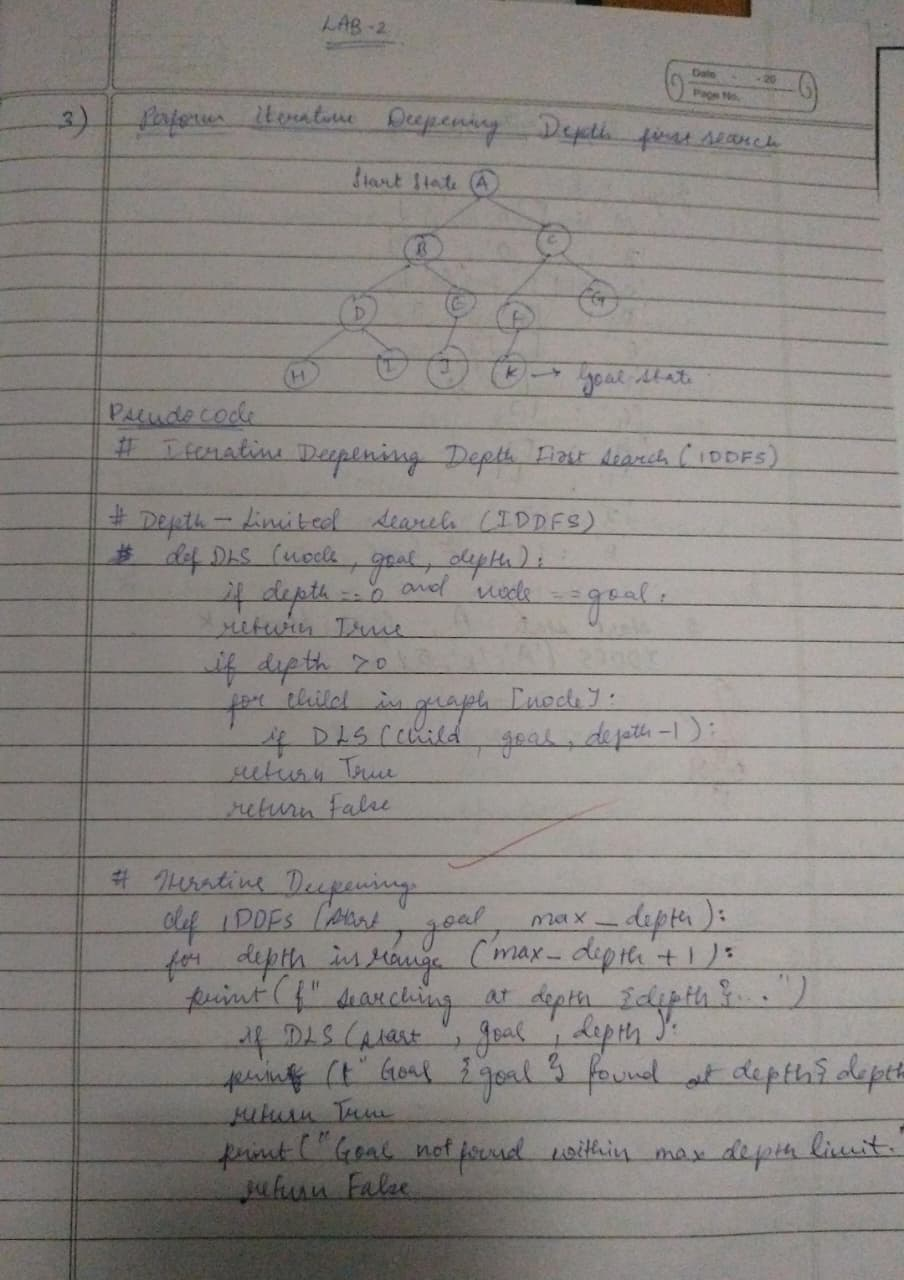 LAB-2
Date - -20
Page No.
3) Perform iterative Deepening Depth first search
Start State A
B C
D E F G
H I J K → Goal State
Pseudocode
# Iterative Deepening Depth First Search (IDDFS)
# Depth-Limited Search (IDDFS)
# def DLS (node, goal, depth):
if depth == 0 and node == goal:
return True
if depth > 0
for child in graph [node]:
if DLS (child, goal, depth-1):
return True
return False
# Iterative Deepening
def IDDFS (start, goal, max_depth):
for depth in range (max_depth + 1):
print (f" searching at depth {depth}...")
if DLS (start, goal, depth):
print (f" Goal {goal} found at depth {depth
return True
print ("Goal not found within max depth limit."
return False